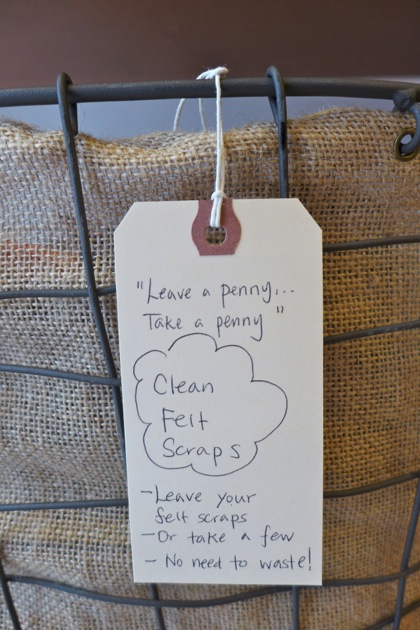 "Leave a penny...
Take a penny"
Clean
Felt
Scraps
-Leave your
felt scraps
-Or take a few
- No need to waste!